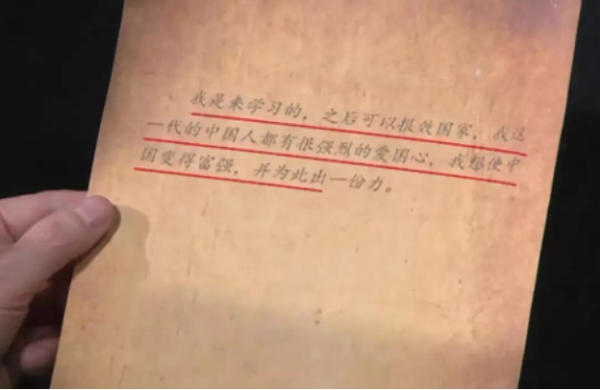 我是来学习的，之后可以报效国家，我这
一代的中国人都有很强烈的爱国心，我想使中
国变得富强，并为此出一份力。